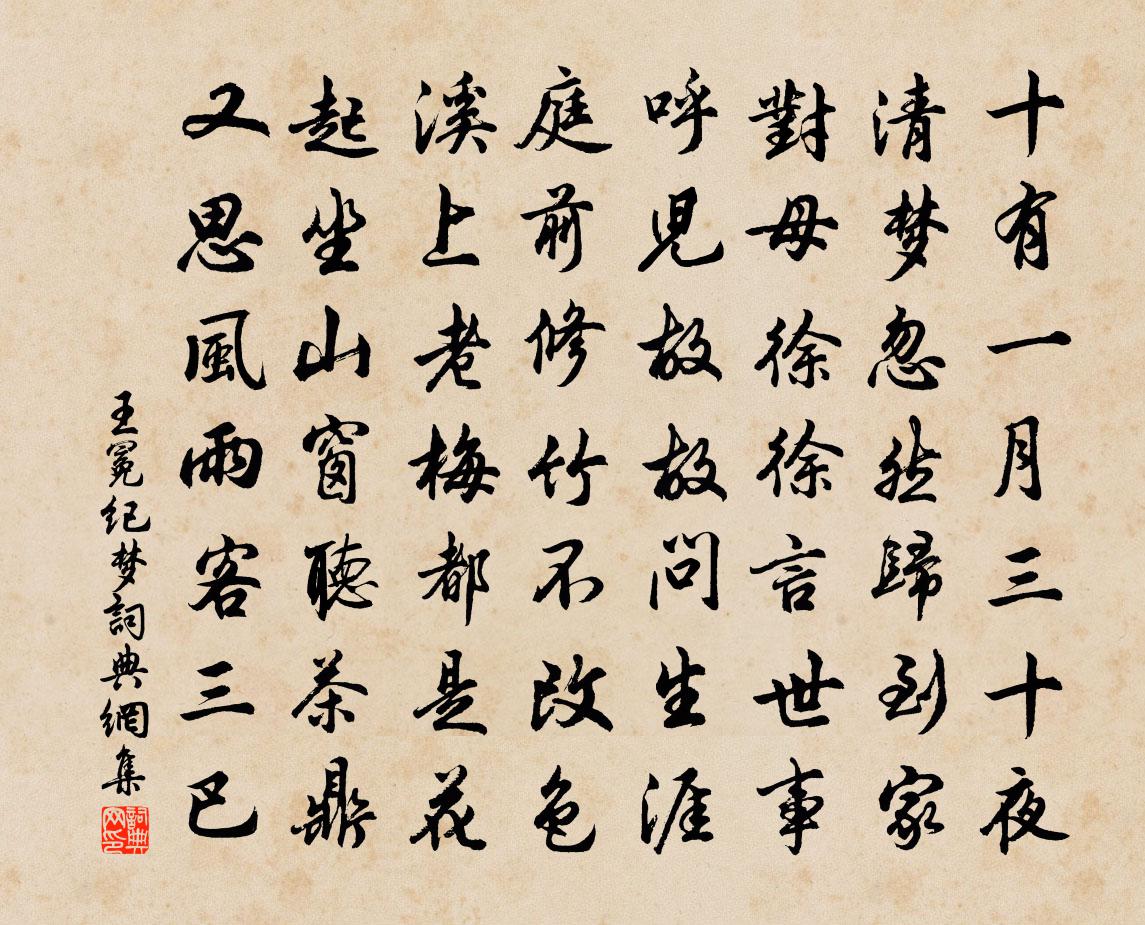 十有一月三十夜
清梦忽然歸到家
對母徐徐言世事
呼兒故故問生涯
庭前修竹不改色
溪上老梅都是花
起坐山窗聽茶鼎
又思風雨客三巴
王冕纪梦詞典網集
詞典网印